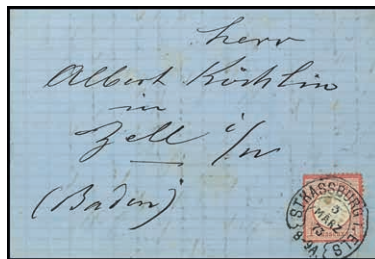 Herr
Albert Köchlin
in
Zell i/W
(Baden)
STRASSBURG I. ELS
3
MÄRZ
73